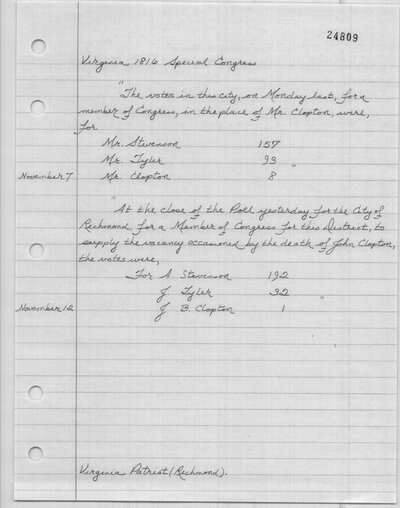 24809
Virginia 1816 Special Congress
"
The votes in this city, on Monday last, for a
member of Congress, in the place of Mr. Clopton, were,
for
Mr. Stevenson 157
Mr. Tyler 93 "
November 7 Mr. Clopton 8
"
At the close of the Poll yesterday for the City of
Richmond, for a Member of Congress for this District, to
supply the vacancy occasioned by the death of John Clopton,
the votes were,
For A Stevenson 192
J Tyler 32 "
November 12 J B. Clopton 1
Virginia Patriot (Richmond).